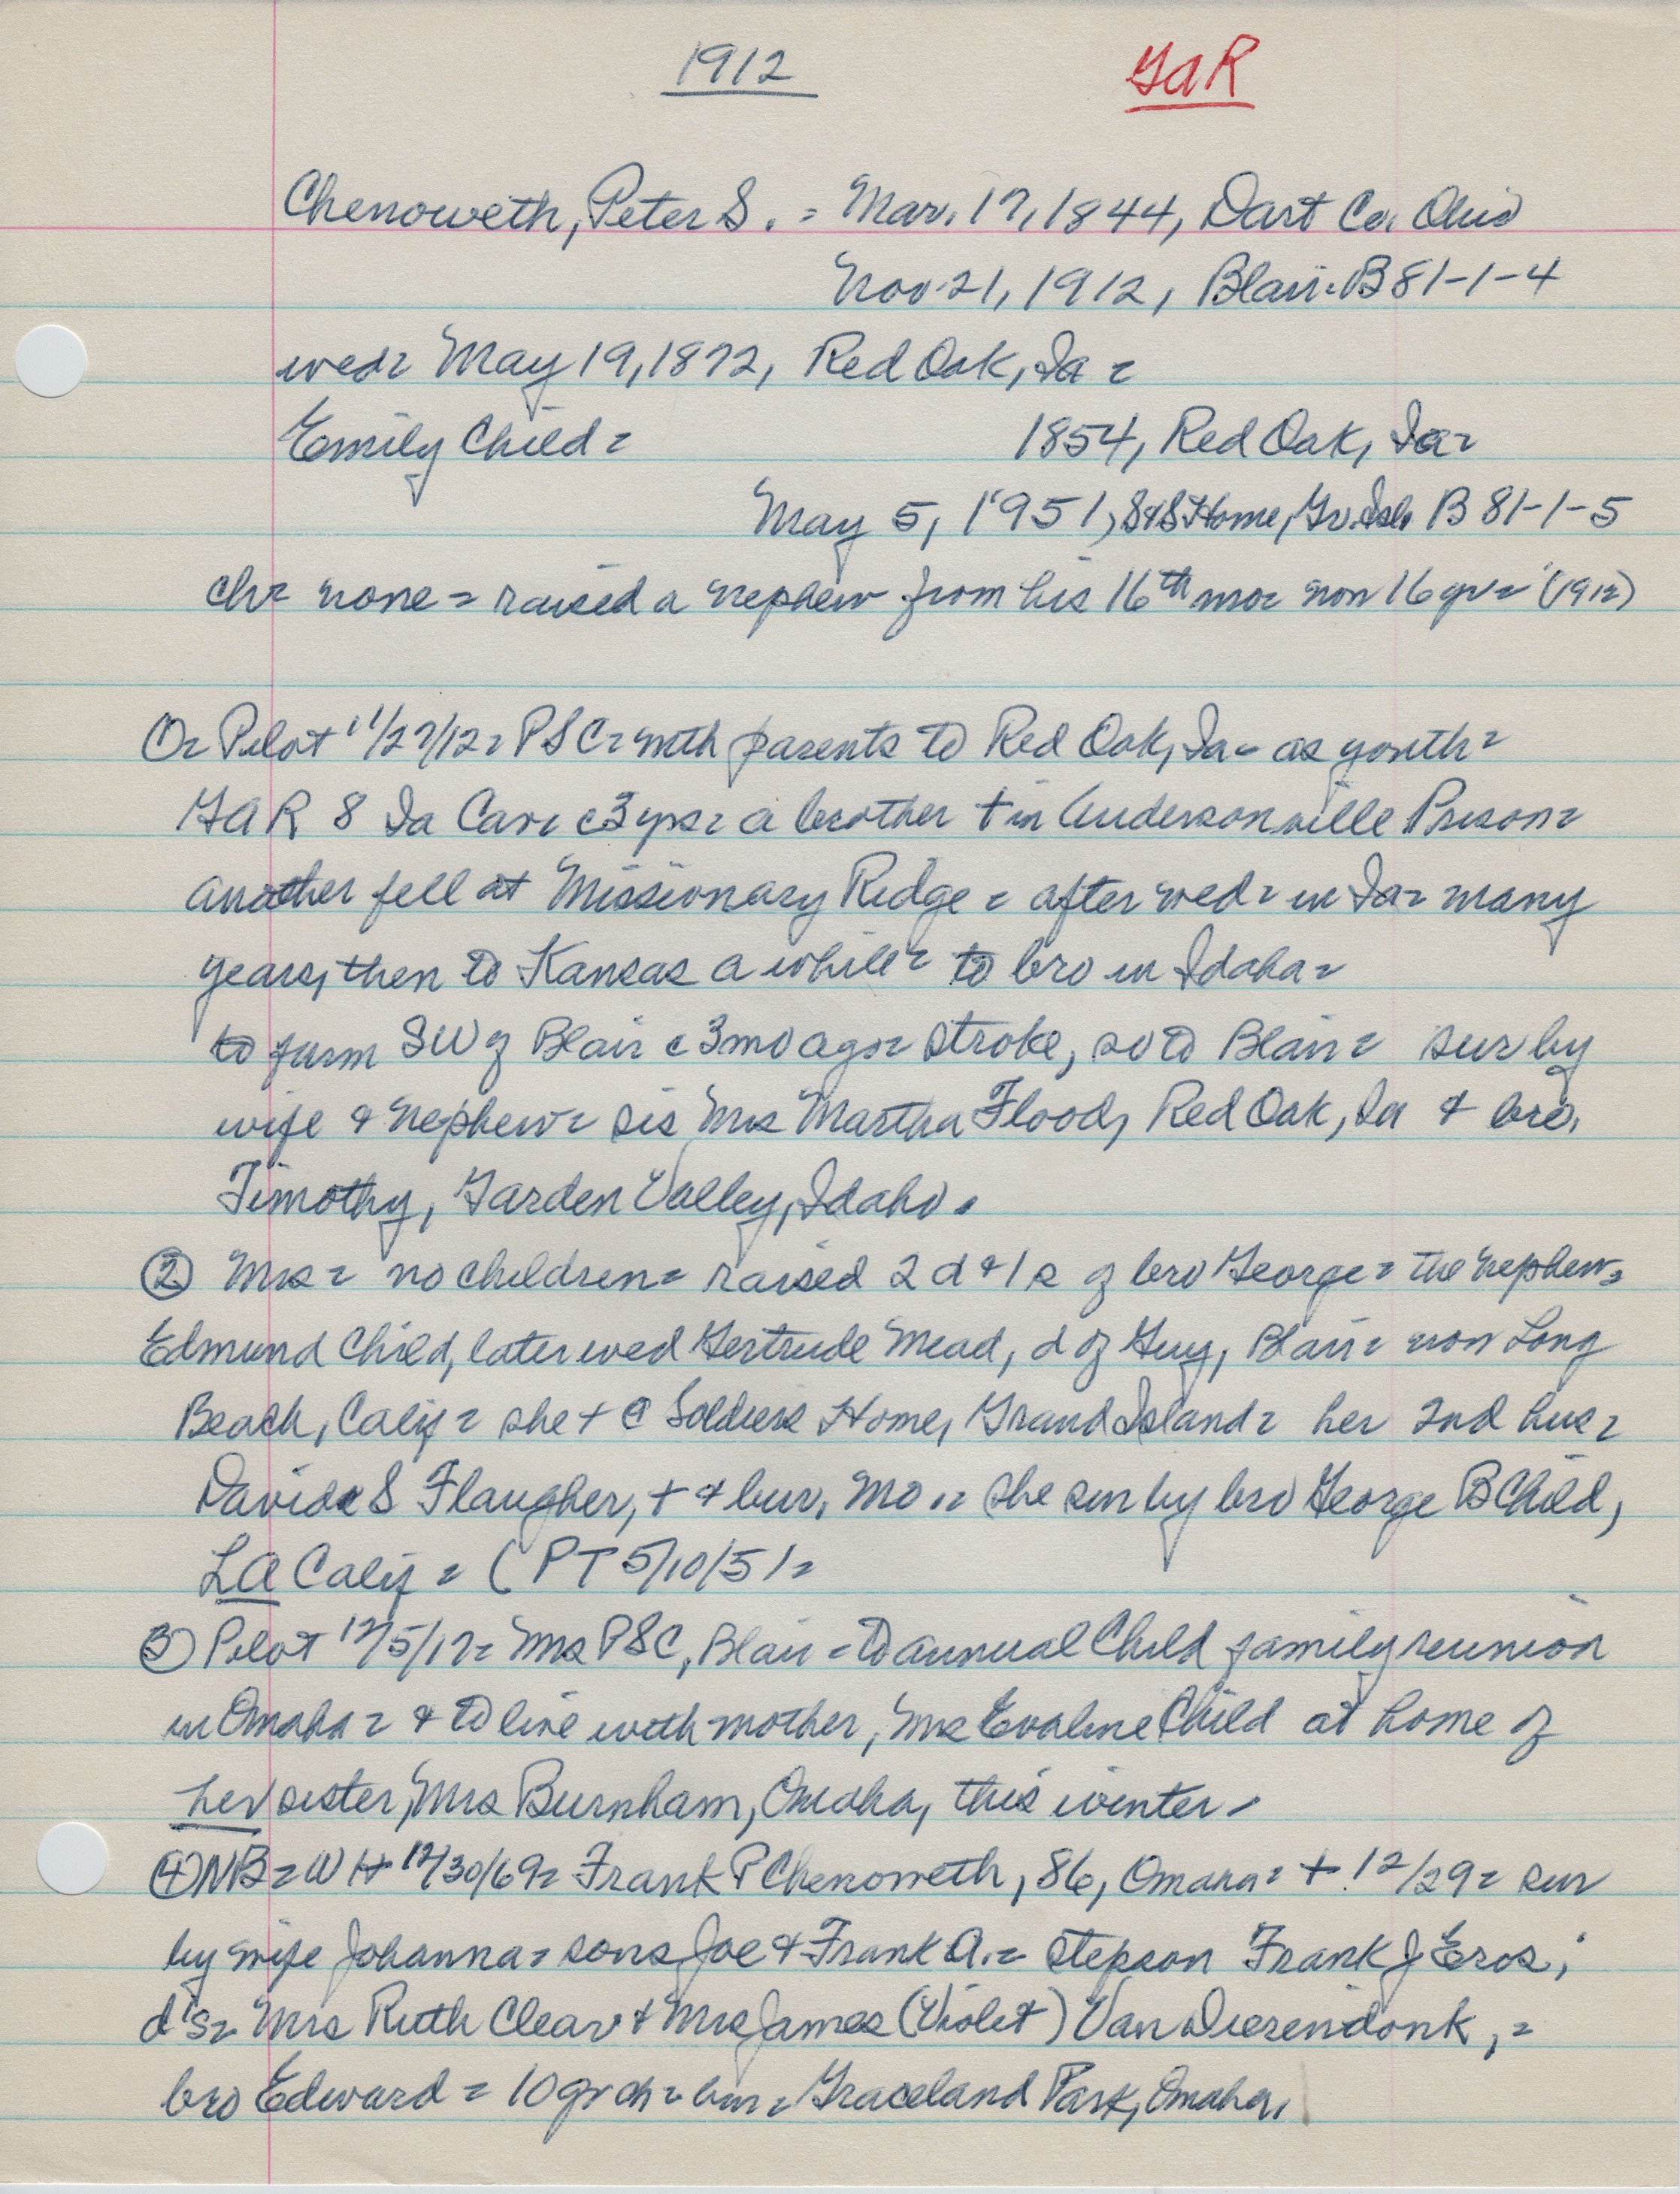 1912 GAR
Chenoweth, Peter S. = Mar. 17, 1844, Dart Co. Ohio
Nov 21, 1912, Blair = B 81-1-4
wed = May 19, 1872, Red Oak, Ia =
Emily Child = 1854, Red Oak, Ia =
May 5, 1951, S&S Home, Gr. Isl. B 81-1-5
ch = none = raised a nephew from his 16th mo = now 16 yr = (1912)
Pilot 11/27/12 = PSC = with parents to Red Oak, Ia = as youth =
GAR 8 Ia Cav c 3 yrs = a brother + in Andersonville Prison =
another fell at Missionary Ridge = after wed = in Ia = many
years, then to Kansas a while = to bro in Idaho =
to farm SW of Blair c 3 mo ago = stroke, so to Blair = sur by
wife & nephew = sis Mrs Martha Flood, Red Oak, Ia & bro.
Timothy, Garden Valley, Idaho.
② Mrs = no children = raised 2 d & 1 s of bro George = the nephew =
Edmund Child, later wed Gertrude Mead, d of Guy, Blair = now Long
Beach, Calif = she + @ Soldiers Home, Grand Island = her 2nd hus =
David S Flaugher, + & bur. Mo. = she sur by bro George B Child,
LA Calif = (PT 5/10/51 =
③ Pilot 12/5/12 = Mrs PSC, Blair = to annual Child family reunion
in Omaha = & to live with mother, Mrs Evaline Child at home of
her sister, Mrs Burnham, Omaha, this winter -
④ NB = WH 12/30/69 = Frank P Chenoweth, 86, Omaha = + 12/29 = sur
by wife Johanna = sons Joe & Frank A. = stepson Frank J Eros,
d's = Mrs Ruth Clear & Mrs James (Violet) Van Dierendonk, =
bro Edward = 10 gr ch = bur = Graceland Park, Omaha.